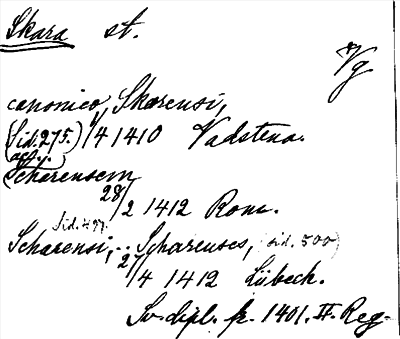 Skara st.
Vg
canonico Skarensi,
(Sid. 275.) 1/4 1410 Vadstena.
Scharensem
28/2 1412 Rom.
Sid. 497.
Scharensi, .. Scharenses, (sid. 500)
27/4 1412 Lübeck.
Sv. dipl. fr. 1401. II. Reg.